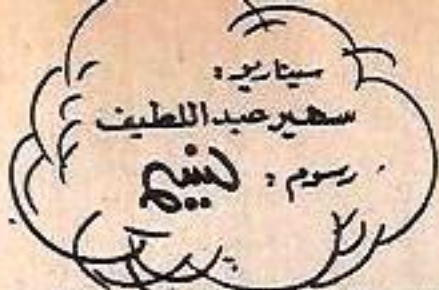 سيناريو:
سهير عبد اللطيف
رسوم: